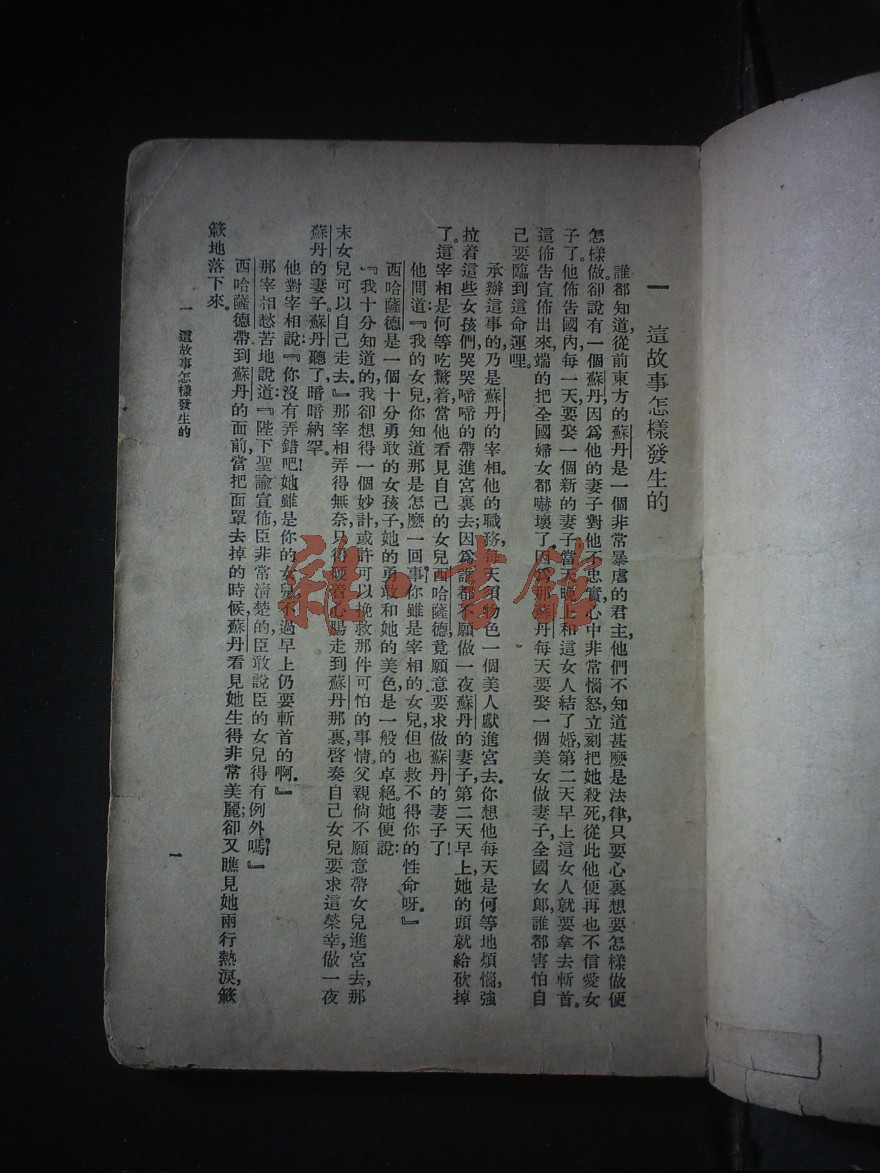 一　這故事怎樣發生的
誰都知道，從前東方的蘇丹是一個非常暴虐的君主，他們不知道甚麼是法律，只要心裏想要怎樣做便
怎樣做。卻說有一個蘇丹，因爲他的妻子對他不忠實，心中非常惱怒，立刻把她殺死，從此他便再也不信愛女
子了。他佈告國內，每一天，要娶一個新的妻子，當天晚上和這女人結了婚，第二天早上這女人就要拿去斬首。
這佈告宣佈出來，端的把全國婦女都嚇壞了。因爲那蘇丹每天要娶一個美女做妻子，全國女郎，誰都害怕自
己要臨到這命運哩。
承辦這事的，乃是蘇丹的宰相。他的職務，每天須物色一個美人獻進宮去。你想他每天是何等地煩惱，強
拉着這些女孩們，哭哭啼啼的帶進宮裏去；因爲誰都不願做一夜蘇丹的妻子，第二天早上，她的頭就給砍掉
了。這宰相是何等吃驚着，當他看見自己的女兒西哈薩德，竟願意要求做蘇丹的妻子了！
他問道：『我的女兒，你知道那是怎麼一回事？你雖是宰相的女兒，但也救不得你的性命呀。』
西哈薩德是一個十分勇敢的女孩子，她的勇敢和她的美色是一般的卓絕。她便說：
『我十分知道的，我卻想得一個妙計，或許可以挽救那件可怕的事情。父親倘不願意帶女兒進宮去，那
末女兒可以自己走去。』那宰相弄得無奈，只得硬着心腸走到蘇丹那裏，啓奏自己女兒要求這榮幸，做一夜
蘇丹的妻子。蘇丹聽了，暗暗納罕。
他對宰相說：『你沒有弄錯吧！她雖是你的女兒，不過早上仍要斬首的啊。』
那宰相愁苦地說道：『陛下聖諭宣佈，臣非常清楚的，臣敢說臣的女兒得有例外嗎？』
西哈薩德帶到蘇丹的面前，當把面罩去掉的時候，蘇丹看見她生得非常美麗；卻又瞧見她兩行熱淚，簌
簌地落下來。
一　這故事怎樣發生的
一
雜·書館